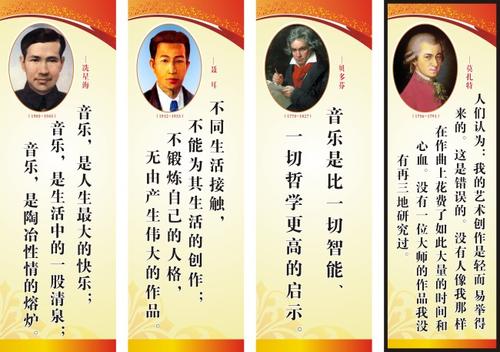 ——冼星海
(1905-1945)
音乐，是人生最大的快乐；
音乐，是生活中的一股清泉；
音乐，是陶冶性情的熔炉。
——聂 耳
(1912-1935)
不同生活接触，
不能为其生活的创作；
不锻炼自己的人格，
无由产生伟大的作品。
——贝多芬
(1770-1827)
音乐是比一切智能、
一切哲学更高的启示。
——莫扎特
(1756-1791)
人们认为：我的艺术创作是轻而易举得
来的。这是错误的。没有人像我那样
在作曲上花费了如此大量的时间和
心血。没有一位大师的作品我没
有再三地研究过。